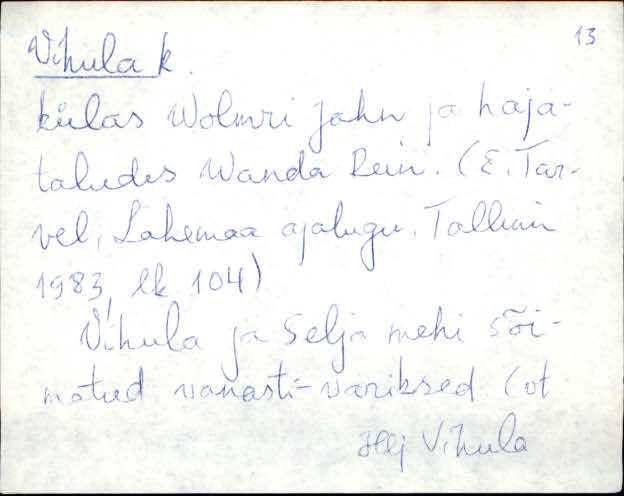 13
Vihula k.
külas Wolmri Jahn ja haja-
taludes Wanda Rein. (E. Tar-
vel, Lahemaa ajalugu. Tallinn
1983, lk 104)
Vihula ja Selja mehi sõi-
matud vanasti - variksed (vt
Hlj Vihula